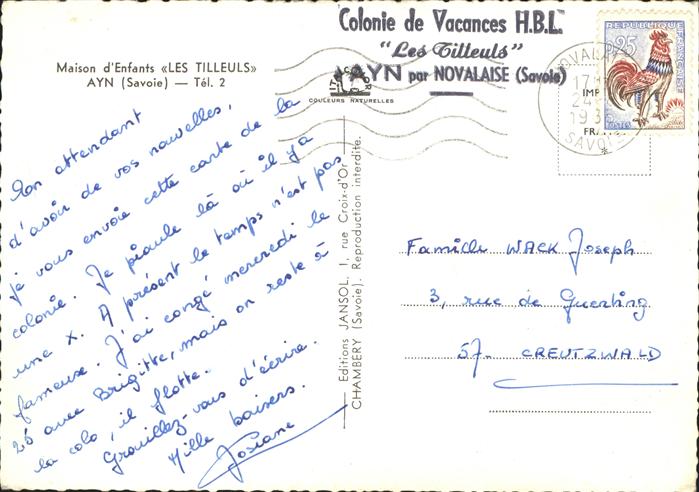 Maison d'Enfants «LES TILLEULS»
AYN (Savoie) — Tél. 2
Colonie de Vacances H.B.L.
"Les Tilleuls"
AYN par NOVALAISE (Savoie)
COULEURS NATURELLES
REPUBLIQUE FRANÇAISE
25
POSTES
17
24
19
SAVOIE
IMP
FRA
En attendant
d'avoir de vos nouvelles,
je vous envoie cette carte de la
colonie. Je piaule là où il y a
une X. A présent le temps n'est pas
fameux. J'ai congé mercredi le
26 avec Brigitte, mais on reste à
la colo, il flotte.
Grouillez-vous d'écrire.
Mille baisers.
Josiane
— Editions JANSOL, 1, rue Croix-d'Or —
CHAMBÉRY (Savoie). Reproduction interdite.
Famille WACK Joseph
3, rue de Guerting
57- CREUTZWALD